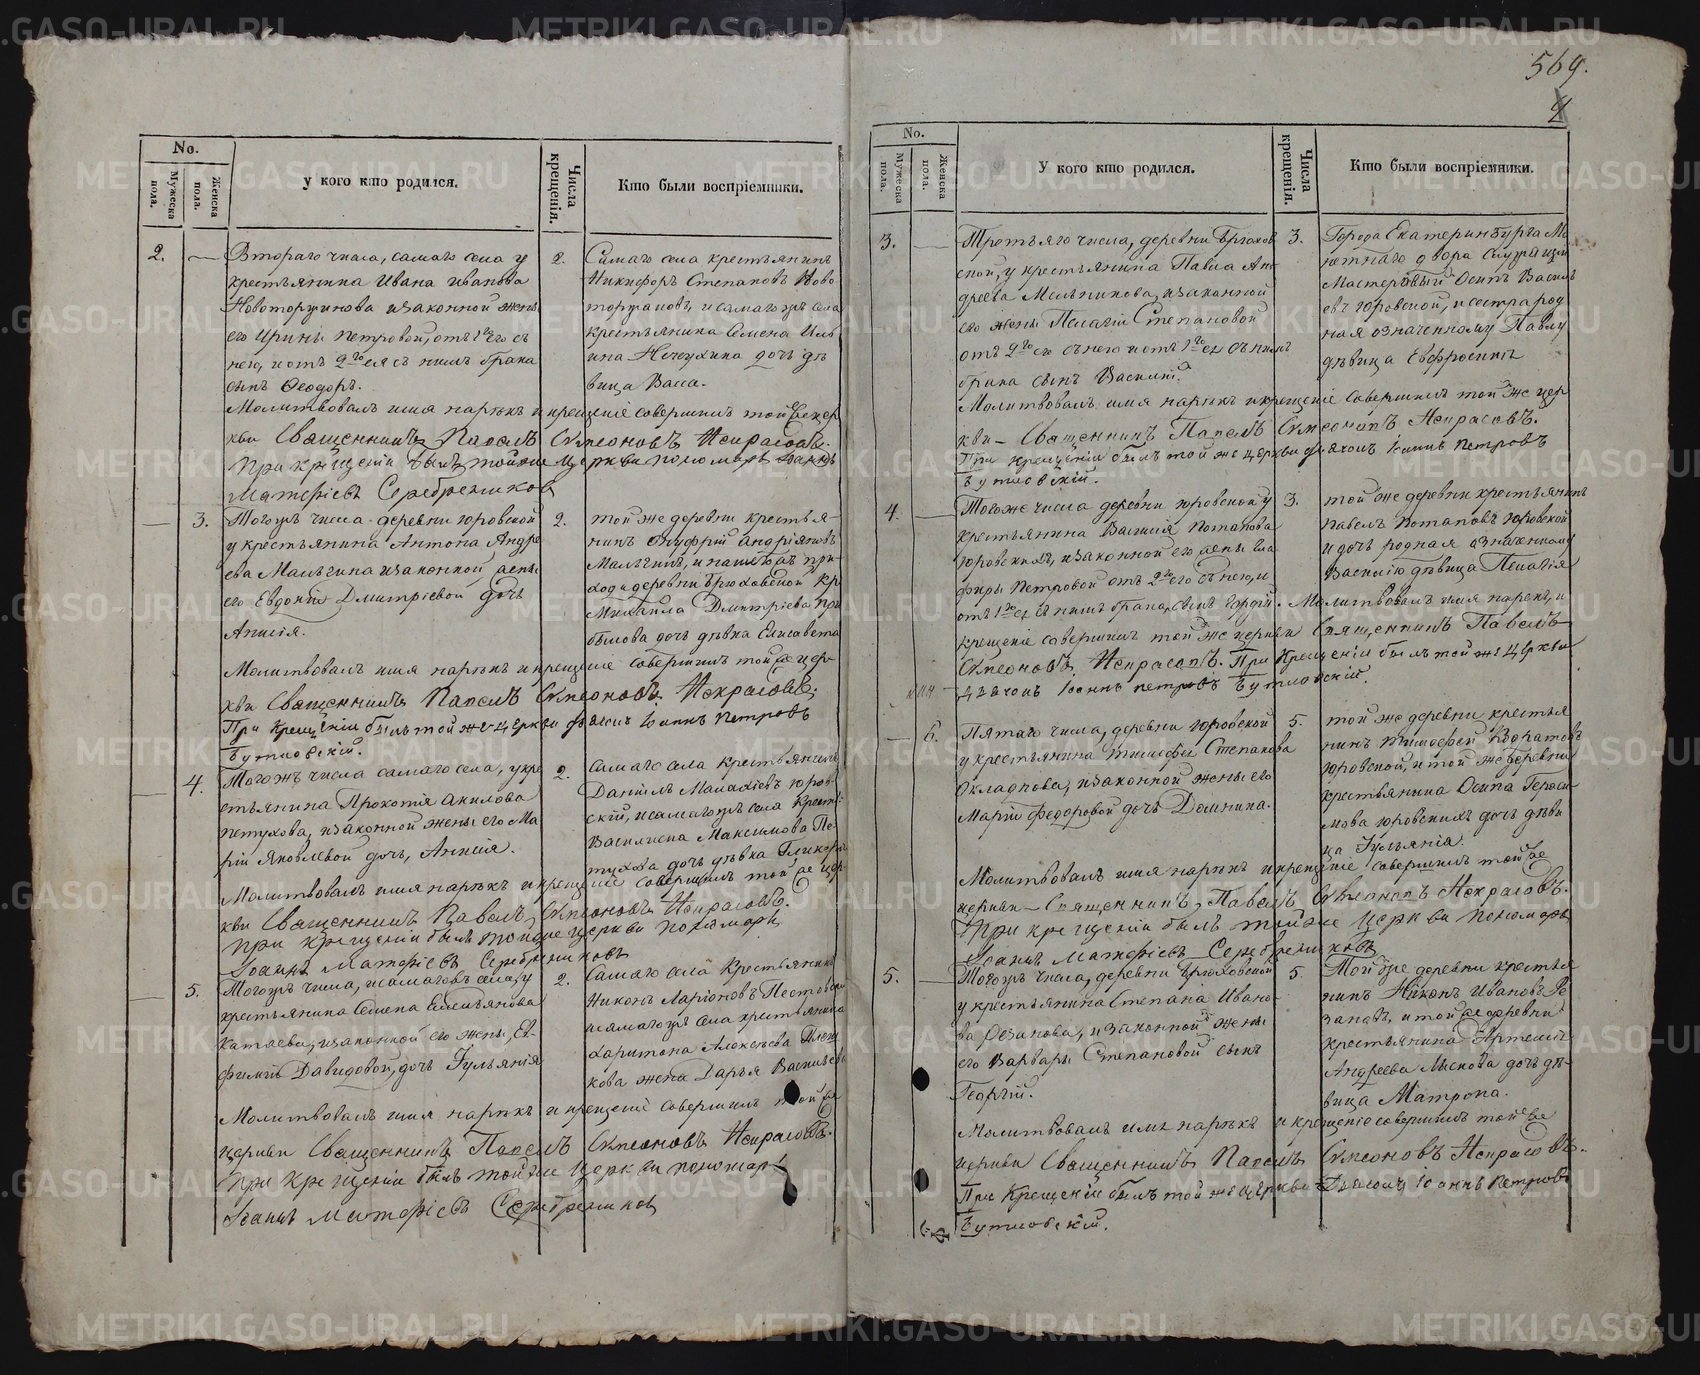 569.
4
No.
Мужеска пола.
Женска пола.
у кого кто родился.
Числа крещенія.
Кто были воспріемники.
2.
Втораго числа, самаго села у
крестьянина Ивана Иванова
Новоторжинова и законной жены
его Ирины Петровой, отъ 1го его съ
нею, и отъ 2го ея съ нимъ брака
сынъ Ѳеодоръ.
2.
Самаго села крестьянинъ
Никифоръ Степановъ Ново
торжиновъ, и самагожъ села
крестьянина Семена Иль
ина дочь дѣ
вица Васса.
Молитвовалъ имя нарѣкъ и крещеніе совершилъ тойже цер
кви Священникъ Павелъ Симеоновъ Некрасовъ.
При крещеніи былъ тойже Церкви пономарь Іоаннъ
Матѳіевъ Серебрениковъ
3.
Тогожъ числа деревни Юровской
у крестьянина Антона Андре
ева Малыгина и законной жены
его Евдокіи Дмитріевой дочь
Анисія.
2.
той же деревни крестья-
нинъ Онуфрій Андріяновъ
Малыгинъ, и нашегожъ при-
хода деревни Брюховской кр
Михайла Дмитріева При
былова дочь дѣвка Елисавета
Молитвовалъ имя нарѣкъ и крещеніе совершилъ той же цер-
кви Священникъ Павелъ Симеоновъ Некрасовъ;
При Крещеніи былъ той же церкви діаконъ Іоаннъ Петровъ
Бутаовскій.
4.
Тогожъ числа самаго села, у кре
стьянина Прокопія Акилова
Петухова, и законной жены его Ма
ріи Яковлевой дочь, Анисія.
2.
Самаго села крестьянинъ
Даніилъ Малахіевъ Юров
скій, и самагожъ села крест:
Василиска Максимова Пе-
тухова дочь дѣвка Гликерія
Молитвовалъ имя нарѣкъ и крещеніе совершилъ той же цер
кви Священникъ Павелъ Симеоновъ Некрасовъ.
при крещеніи былъ тойже церкви пономарь
Іоаннъ Матѳіевъ Серебрениковъ
5.
Тогожъ числа, и самагожъ села, у
крестьянина Семена Емельянова
Катаева, и законной его жены, Ев-
фиміи Давидовой, дочь Іульянія
2.
Самаго села Крестьянинъ
Никонъ Ларіоновъ Пестовъ
и самагожъ села крестьянина
Харитона Алексѣева
кова жена Дарья Васильева
Молитвовалъ имя нарѣкъ и крещеніе совершилъ той же
церкви Священникъ Павелъ Симеоновъ Некрасовъ.
При крещеніи былъ тойже Церкви пономарь
Іоаннъ Матѳіевъ Серебрениковъ
No.
Мужеска пола.
Женска пола.
У кого кто родился.
Числа крещенія.
Кто были воспріемники.
3.
Третьяго числа, деревни Брюхов
ской, у крестьянина Павла Ан-
дреева Мельникова, и законной
его жены Пелагіи Степановой
отъ 2го его съ нею и отъ 1го ея съ нимъ
брака сынъ Василій.
3.
Города Екатеринбурга Мо
нетнаго двора служащій
Мастеровый Осипъ Василь
евъ Юровской, и сестра род
ная означенному Павлу
дѣвица Евфросинія
Молитвовалъ имя нарѣкъ и крещеніе совершилъ той же цер
кви Священникъ Павелъ Симеоновъ Некрасовъ.
При крещеніи былъ той же церкви діаконъ Іоаннъ Петровъ
Бутаовскій.
4.
Тогоже числа деревни Юровской у
крестьянина Василія Потапова
Юровскихъ, и законной его жены Гла
фиры Петровой отъ 2го его съ нею, и
отъ 1го ея съ нимъ брака, сынъ Гордій.
3.
той же деревни крестьянинъ
Павелъ Потаповъ Юровской
и дочь родная означенному
Василію дѣвица Пелагія
Молитвовалъ имя нарекъ, и
крещеніе совершилъ той же церкви Священникъ Павелъ
Симеоновъ Некрасовъ. При Крещеніи былъ той же церкви
діаконъ Іоаннъ Петровъ Бутаовскій.
6.
Пятаго числа, деревни Юровской
у крестьянина Тимофея Степанова
Окладнова, и законной жены его
Маріи Федоровой дочь Домника.
5.
той же деревни крестья
нинъ Тимоѳей Кодратовъ
Юровской, и той же деревни
крестьянина Осипа Гераси-
мова Юровскихъ дочь дѣви
ца Іульянія.
Молитвовалъ имя нарѣкъ и крещеніе совершилъ той же
церкви Священникъ Павелъ Симеоновъ Некрасовъ.
При крещеніи былъ тойже Церкви пономарь
Іоаннъ Матѳіевъ Серебрениковъ
5.
Тогожъ числа, деревни Брюховской
у крестьянина Степана Ивано-
ва Резанова, и законной жены
его Варвары Степановой сынъ
Георгій.
5.
Той же деревни крестья
нинъ Никонъ Ивановъ Ре
зановъ, и той же деревни
крестьянина Артемія
Андреева Лыскова дочь дѣ-
вица Матрона.
Молитвовалъ имя нарѣкъ и крещеніе совершилъ той же
церкви Священникъ Павелъ Симеоновъ Некрасовъ.
При Крещеніи былъ той же церкви Діаконъ Іоаннъ Петровъ
Бутаовскій.
METRIKI.GASO-URAL.RU